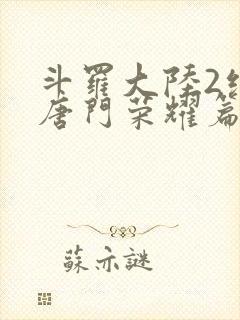 斗羅大陸2
唐門榮耀篇
蘇亦謎